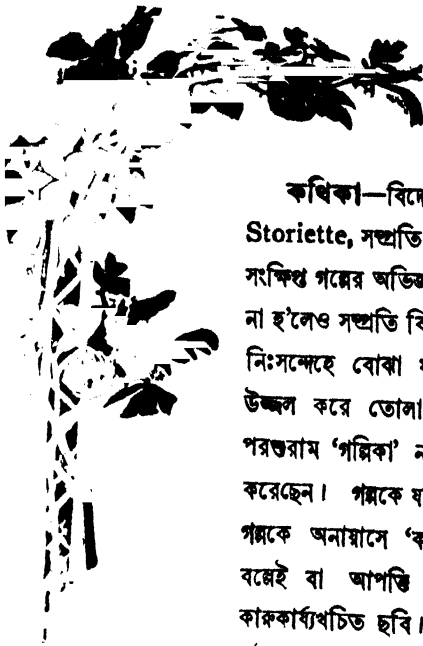 কথিকা—বিদে
Storiette, সম্প্রতি
সংক্ষিপ্ত গল্পের অভিজ্ঞ
না হ’লেও সম্প্রতি বি
নিঃসন্দেহে বোঝা
উজ্জল করে তোলা
পরশুরাম ‘গল্পিকা’ ন
করেছেন। গল্পকে য
গল্পকে অনায়াসে ‘ক
বল্লেই বা আপত্তি
কারুকার্য্যখচিত ছবি।